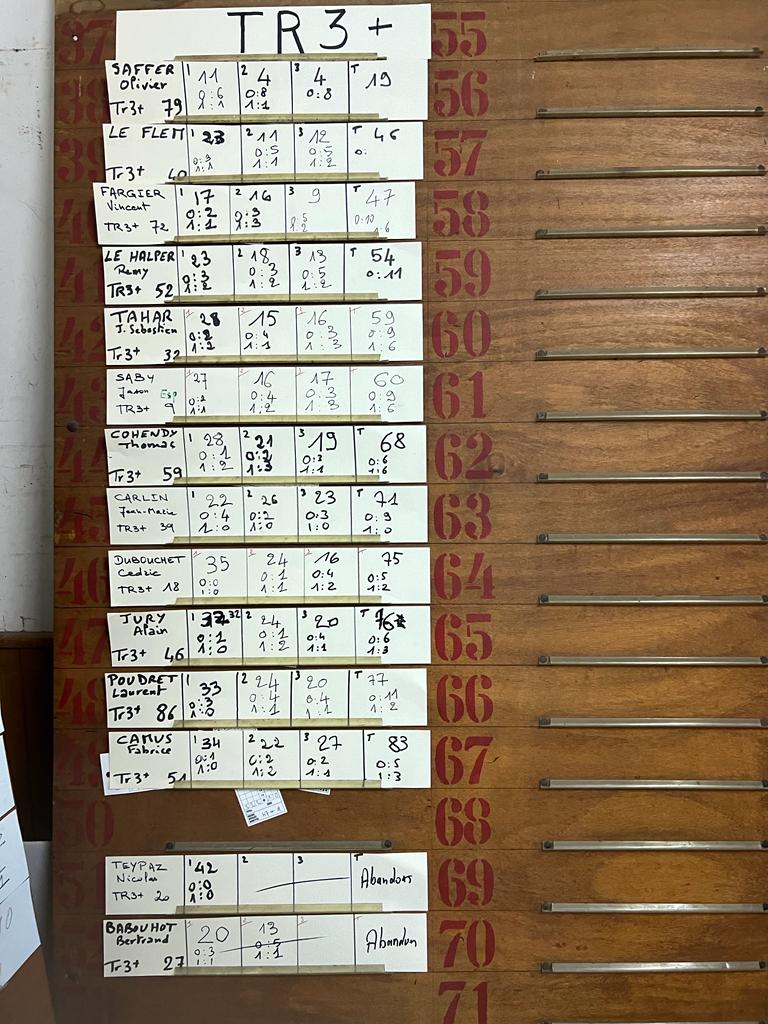 TR3+
37 55
SAFFER 1 11 2 4 3 4 T 19
Olivier 0:6 0:8 0:8
Tr3+ 79 1:1 1:1
38 56
LE FLEM 1 23 2 11 3 12 T 46
0:5 0:5 0:
Tr3+ 40 1:1 1:1 1:2
39 57
FARGIER 1 17 2 16 3 9 T 47
Vincent 0:2 0:3 0:5 0:10
TR3+ 72 1:1 1:3 1:2 1:6
58
LE HALPER 1 23 2 18 3 13 T 54
Remy 0:3 0:3 0:5 0:11
TR3+ 52 1:2 1:2 1:2
59
TAHAR 28 15 16 59
J. Sebastien 0:2 0:4 0:3 0:9
Tr3+ 32 1:1 1:3 1:6
60
SABY 27 16 17 60
Jason Esp 0:2 0:4 0:3 0:9
TR3+ 9 1:1 1:2 1:3 1:6
61
COHENDY 1 28 2 21 3 19 T 68
Thomas 0:1 0:2 0:3 0:6
Tr3+ 59 1:2 1:3 1:1 1:6
62
CARLIN 22 26 23 71
Jean-Marie 0:4 0:2 0:3 0:9
TR3+ 39 1:0 1:0 1:0 1:0
63
DUBOUCHET 35 24 16 75
Cedric 0:0 0:1 0:4 0:5
TR3+ 18 1:0 1:1 1:2 1:2
46 64
JURY 1 32 2 24 3 20 T 76
Alain 0:1 0:1 0:4 0:6
Tr3+ 46 1:0 1:2 1:1 1:3
47 65
POUDRET 1 33 2 24 3 20 T 77
Laurent 0:3 0:4 0:4 0:11
Tr3+ 86 1:0 1:1 1:1 1:2
48 66
CAMUS 1 34 2 22 3 27 T 83
Fabrice 0:1 0:2 0:2 0:5
Tr3+ 51 1:0 1:2 1:1 1:3
49 67
50 68
TEYPAZ 1 42 2 3 T Abandon
Nicolas 0:0
TR3+ 20 1:0
69
BABOUHOT 20 13 Abandon
Bertrand 0:3 0:5
Tr3+ 27 1:1 1:1
70
71